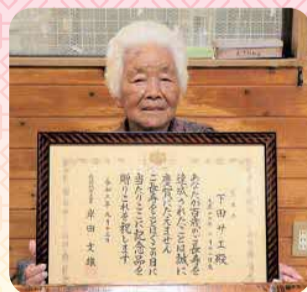 下田サエ殿
あなたが百歳のご長寿を
達成されたことは誠に
慶賀にたえません
ご長寿をことほぐこの日に
当たりここに記念品を
贈りこれを祝します
岸田文雄